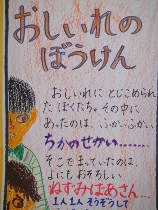 おしいれの
ぼうけん
おしいれに とじこめられ
た ぼくたち。その中に
あったのは、ふかいふかい
ちかのせかい……
そこでまっていたのは、
よにもおそろしい
ねずみばあさん…
1人1人 そうぞうして